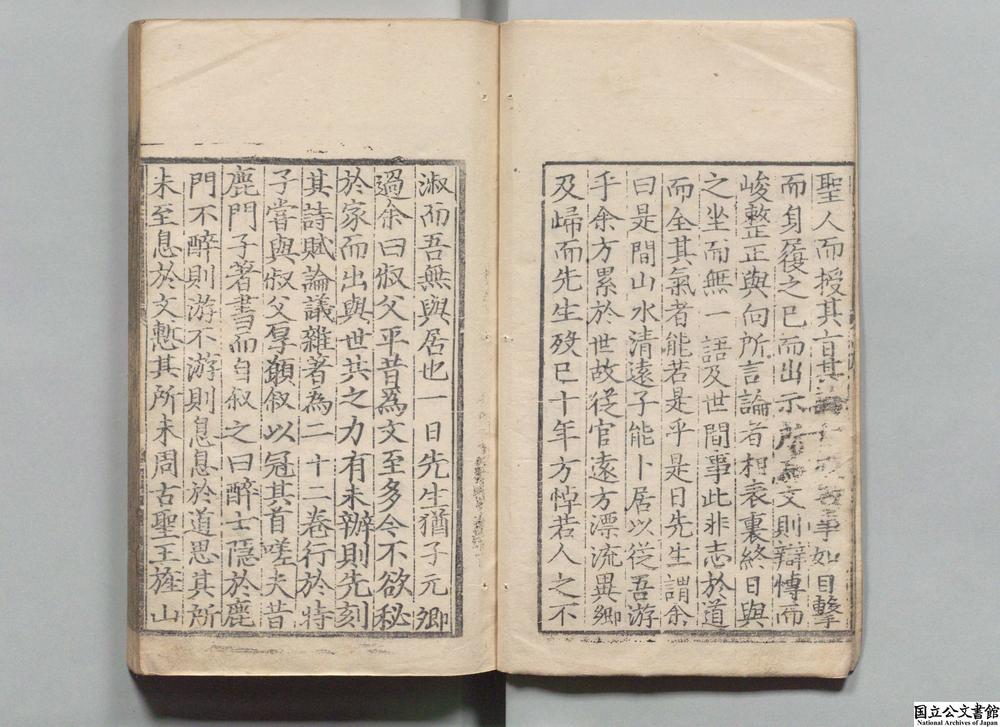 聖人而授其言其事如目擊
而身履之已而出示所為文則辯博而
峻整正與向所言論者相表裏終日與
之坐而無一語及世間事此非志於道
而全其氣者能若是乎是日先生謂余
曰是間山水清遠子能卜居以從吾游
乎余方累於世故從官遠方漂流異鄉
及歸而先生歿已十年方悼若人之不
淑而吾無與居也一日先生猶子元卿
過余曰叔父平昔為文至多今不欲秘
於家而出與世共之力有未辦則先刻
其詩賦論議雜著為二十二卷行於時
子嘗與叔父厚願敘以冠其首嗟夫昔
鹿門子著書而自叙之曰醉士隱於鹿
門不醉則游不游則息息於道思其所
未至息於文慙其所未周古聖王旌山
国立公文書館
National Archives of Japan